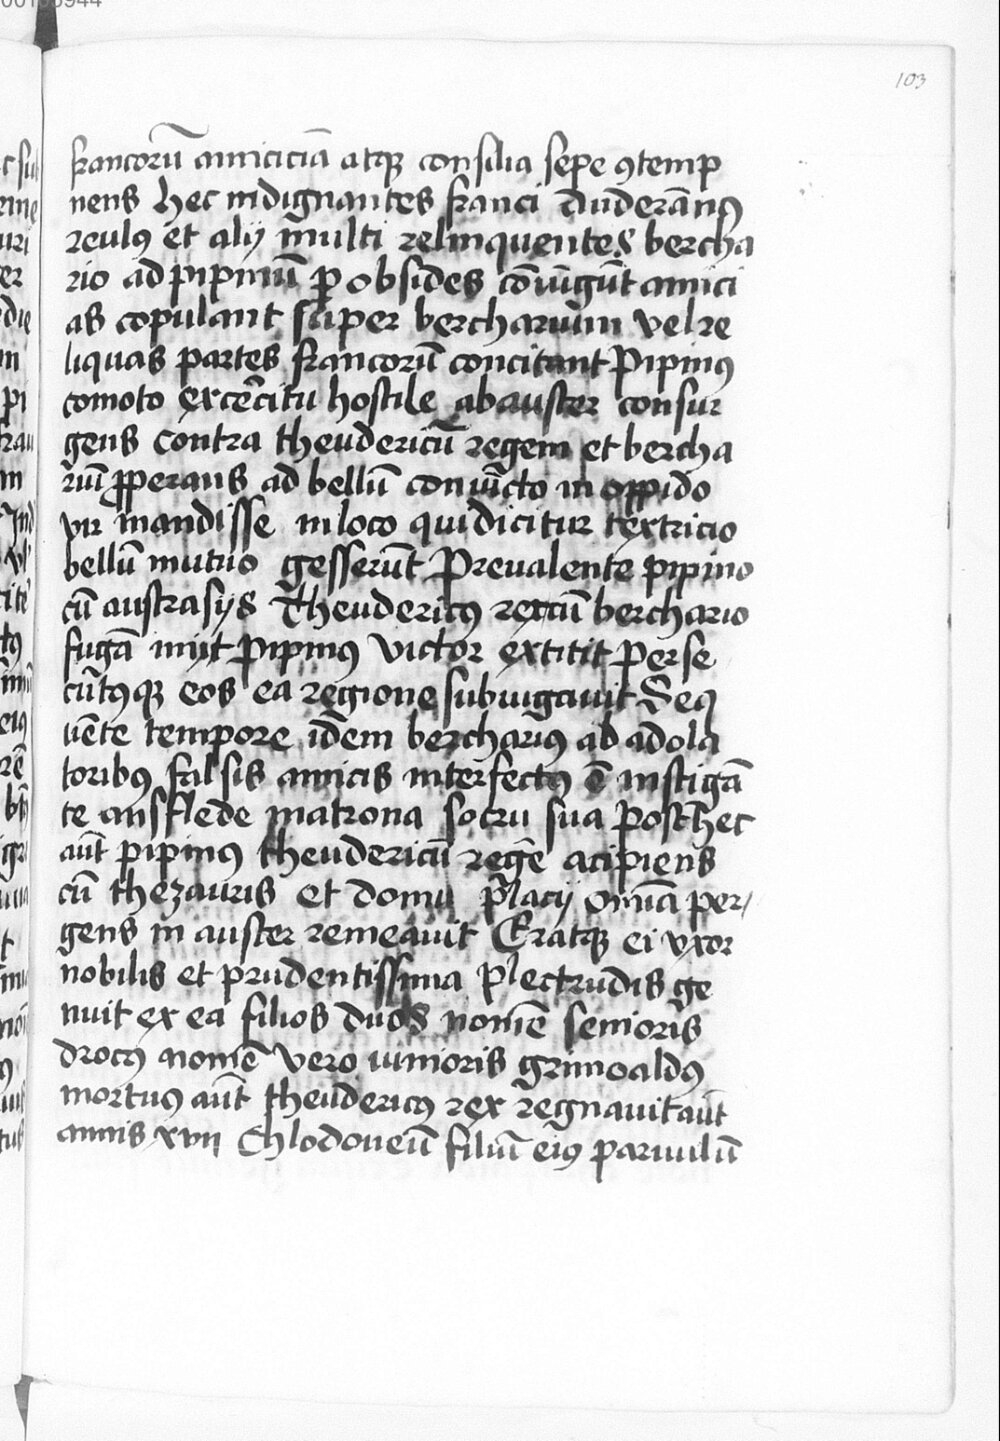 103
francorū amiciciā atqꝫ consilia sepe ꝯtemp
nens hec indignantes franci Auderāmꝰ
reulꝰ et alij multi relinquentes bercha
rio ad pipinū ꝑ obsides cōiūgūt amici
as copulant super bercharium vel re
liquas partes francorū concitant Pipinus
comoto excercitu hostile ab auster consur
gens contra theudericū regem et bercha
riū ꝓperans ad bellū conuicto in oppido
vir mandisse in loco qui dicitur textricio
bellū mutuo gesserūt Preualente pipino
cū austrasijs Theudericꝰ rex cū berchario
fugā inijt Pipinus victor extitit Perse
cūtꝰqꝫ eos ea regione subiugauit Seq
uēte tempore idem bercharius ab adola
toribꝰ falsis amicis interfectꝰ ē instigā
te ansflede matrona socru sua Post hec
aūt pipinus theudericū regē acipiens
cū thezauris et domu palacij oīnia per
gens in auster remeauit Eratqꝫ ei vxor
nobilis et prudentissima Plectrudis ge
nuit ex ea filios duos nomē senioris
drocꝰ nomē vero iunioris grimoaldꝰ
mortuus aūt theudericꝰ rex regnauit aūt
annis xvii Chlodoueū filiū eiꝰ paruulū